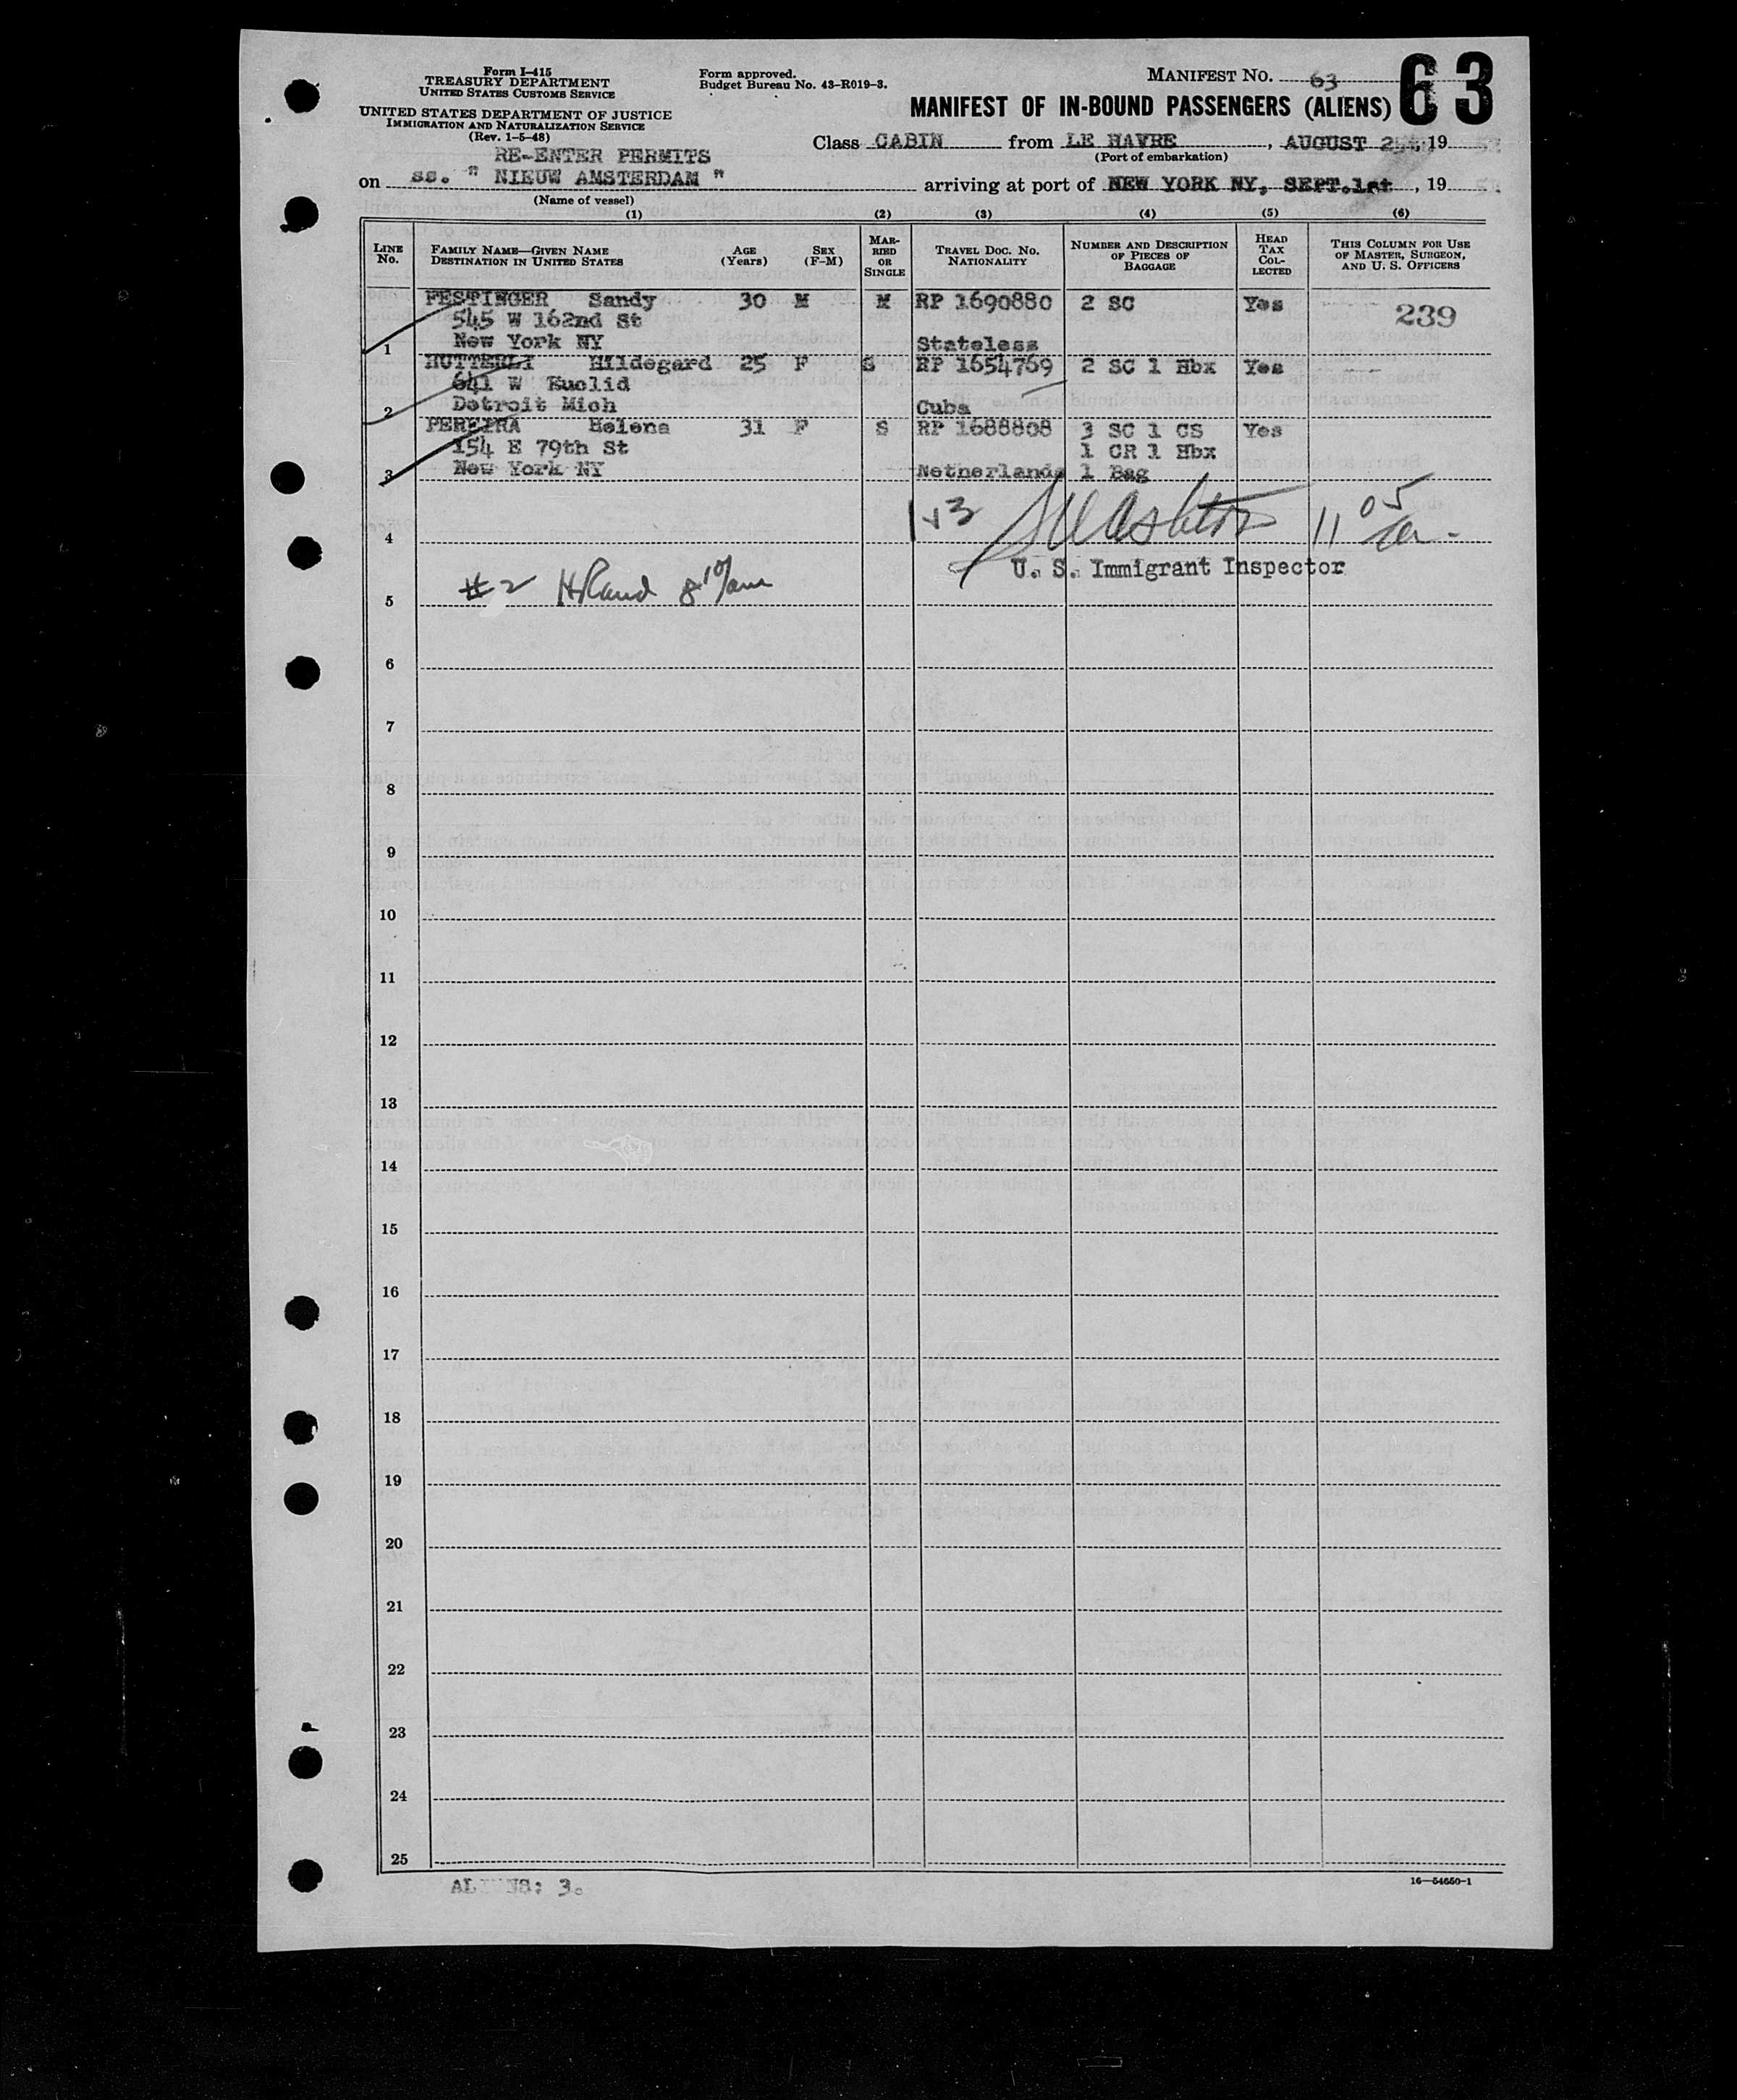 Form I-415
TREASURY DEPARTMENT
UNITED STATES CUSTOMS SERVICE
UNITED STATES DEPARTMENT OF JUSTICE
IMMIGRATION AND NATURALIZATION SERVICE
(Rev. 1-5-48)
Form approved.
Budget Bureau No. 43-R019-3.
MANIFEST No. 63
63
MANIFEST OF IN-BOUND PASSENGERS (ALIENS)
Class CABIN from LE HAVRE, AUGUST 19
(Port of embarkation)
RE-ENTER PERMITS
on ss. " NIEUW AMSTERDAM " arriving at port of NEW YORK NY, SEPT.1st, 19
(Name of vessel)
(1) (2) (3) (4) (5) (6)
LINE No. FAMILY NAME—GIVEN NAME DESTINATION IN UNITED STATES AGE (Years) SEX (F-M) MARRIED OR SINGLE TRAVEL DOC. No. NATIONALITY NUMBER AND DESCRIPTION OF PIECES OF BAGGAGE HEAD TAX COLLECTED THIS COLUMN FOR USE OF MASTER, SURGEON, AND U. S. OFFICERS
FESTINGER Sandy 30 M M RP 1690880 2 SC Yes 239
545 W 162nd St
1 New York NY Stateless
HUTTERLI Hildegard 25 F S RP 1654769 2 SC 1 Hbx Yes
641 W Euclid
2 Detroit Mich Cuba
PEREIRA Helena 31 F S RP 1688808 3 SC 1 CS Yes
154 E 79th St 1 CR 1 Hbx
3 New York NY Netherlands 1 Bag
4 11 05
U. S. Immigrant Inspector
5 #2 8 10/am
6
7
8
9
10
11
12
13
14
15
16
17
18
19
20
21
22
23
24
25
ALIENS: 3.
16—54650-1